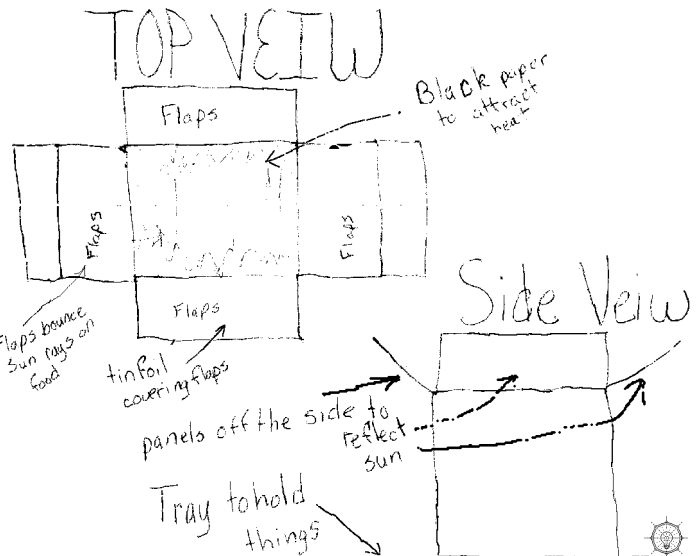 TOP VEIW
Flaps
Black paper
to attract
heat
Flaps
Flaps
Flaps
Flaps bounce
sun rays on
food
tinfoil
covering flaps
Side Veiw
panels off the side to
reflect
sun
Tray to hold
things